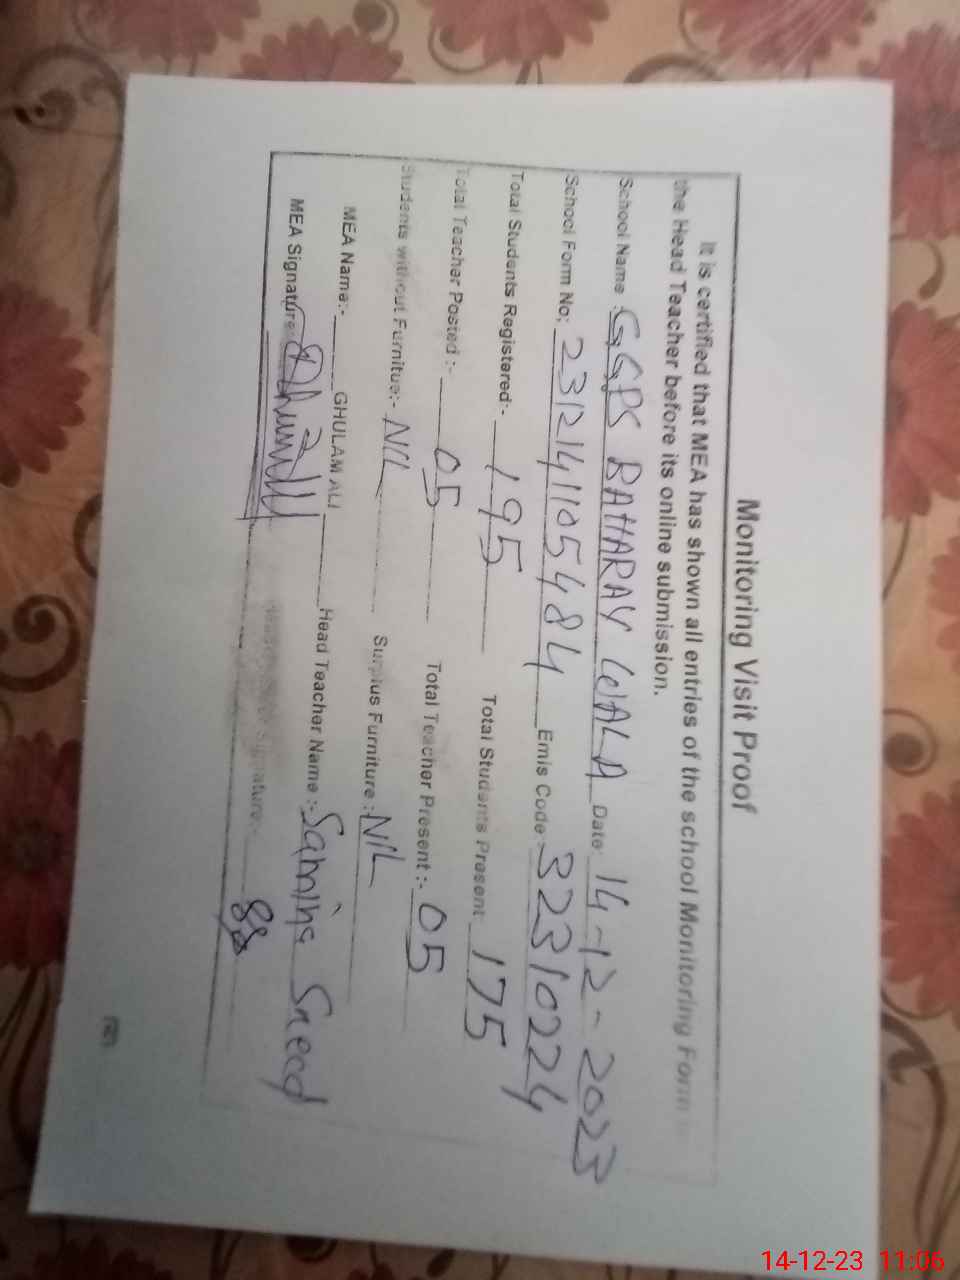 Monitoring Visit Proof
It is certified that MEA has shown all entries of the school Monitoring Form to
the Head Teacher before its online submission.
School Name : GGPS BAHARAY WALA Date: 14-12-2023
School Form No: 2312141105484 Emis Code :- 32310224
Total Students Registered:- 195 Total Students Present: 175
Total Teacher Posted :- 05 Total Teacher Present :- 05
Students without Furnitue:- NIL Surplus Furniture : NIL
MEA Name:- GHULAM ALI Head Teacher Name :- Samina Saeed
MEA Signature: Signature:-
14-12-23 11:06